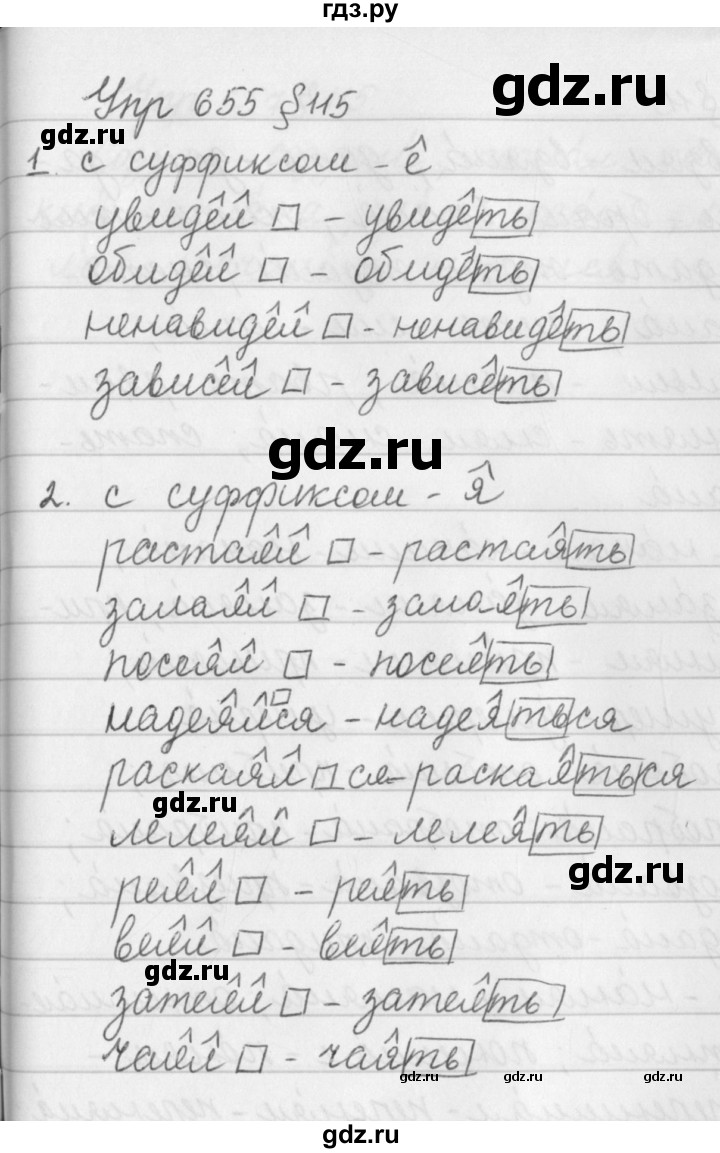 гдз.ру
Упр 655 § 115
gdz.ru
gdz.ru
1. с суффиксом - е
увидел - увидеть
обидел - обидеть
ненавидел - ненавидеть
зависел - зависеть
gdz.ru
2. с суффиксом - я
растаял - растаять
залаял - залаять
посеял - посеять
надеялся - надеяться
раскаялся - раскаяться
gdz.ru
лелеял - лелеять
gdz.ru
реял - реять
веял - веять
gdz.ru
затеял - затеять
чаял - чаять
gdz.ru gdz.ru gdz.ru
gdz.ru